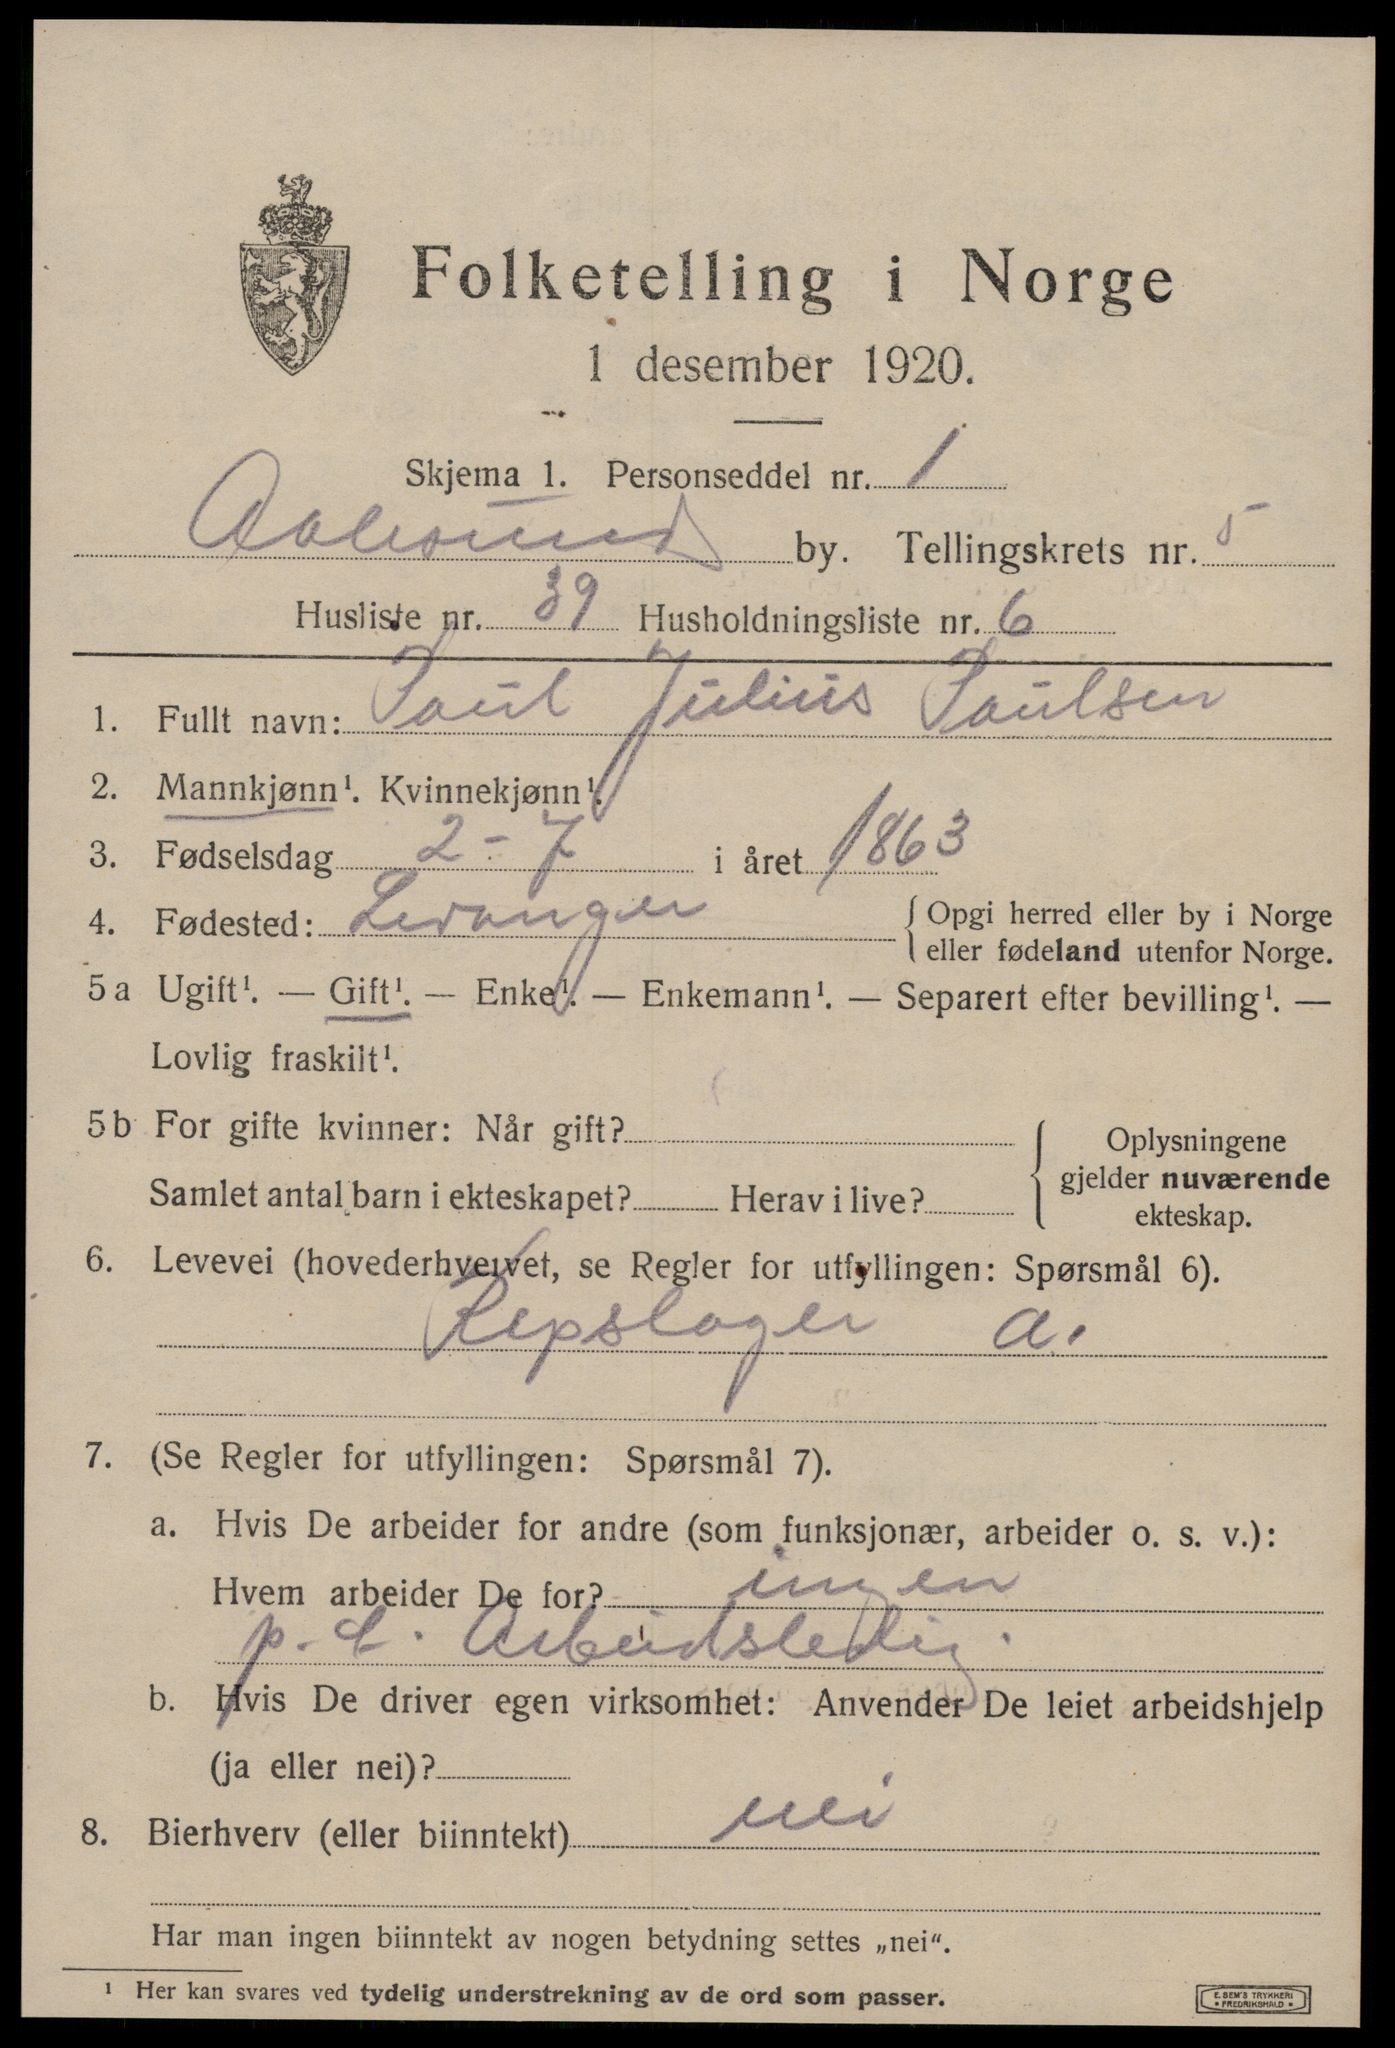 Folketelling i Norge
1 desember 1920.
Skjema 1. Personseddel nr. 1
Aalesund by. Tellingskrets nr. 5
Husliste nr. 39 Husholdningsliste nr. 6
1. Fullt navn: Paul Julius Paulsen
2. Mannkjønn¹. Kvinnekjønn¹.
3. Fødselsdag 2-7 i året 1863
4. Fødested: Levanger { Opgi herred eller by i Norge
eller fødeland utenfor Norge.
5a Ugift¹. — Gift¹. — Enke¹. — Enkemann¹. — Separert efter bevilling¹. —
Lovlig fraskilt¹.
5b For gifte kvinner: Når gift? { Oplysningene
gjelder nuværende
ekteskap.
Samlet antal barn i ekteskapet? Herav i live?
6. Levevei (hovederhvervet, se Regler for utfyllingen: Spørsmål 6).
Repslager a.
7. (Se Regler for utfyllingen: Spørsmål 7).
a. Hvis De arbeider for andre (som funksjonær, arbeider o. s. v.):
Hvem arbeider De for? ingen
p. t. Arbeidsledig.
b. Hvis De driver egen virksomhet: Anvender De leiet arbeidshjelp
(ja eller nei)?
8. Bierhverv (eller biinntekt) nei
Har man ingen biinntekt av nogen betydning settes „nei“.
¹ Her kan svares ved tydelig understrekning av de ord som passer.
E. SEM'S TRYKKERI
• FREDRIKSHALD •